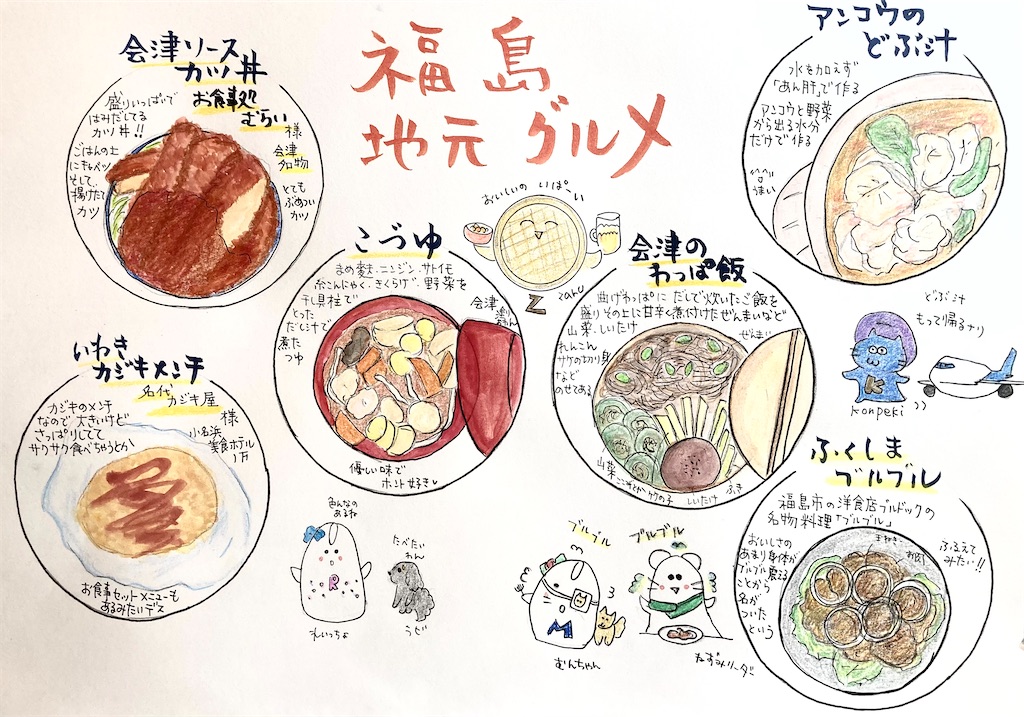 福島
地元グルメ
会津ソース
カツ丼
お食事処
むらい
様
盛りいっぱいで
はみだしてる
カツ丼!!
ごはんの上
にキャベツ
そして
揚げたて
カツ
会津
名物
とても
ぶあつい
カツ
アンコウの
どぶ汁
水を加えず
「あん肝」で作る
アンコウと野菜
から出る水分
だけで作る
うまい
おいしいの いぱーい
Z zaru
こづゆ
まめ麩・ニンジン・サトイモ
糸こんにゃく・きくらげ・野菜を
干し貝柱で
とった
だし汁で
煮た
つゆ
会津
塗り
わん
優しい味で
ホント好き
会津の
わっぱ飯
曲げわっぱに だしで炊いたご飯を
盛り その上に甘辛く煮付けたぜんまいなど
山菜、しいたけ
れんこん
サケの切り身
などを
のせてある
ぜんまい
山菜 こごみとか
竹の子
しいたけ
ふき
どぶ汁
もって帰るナリ
konpeki
いわき
カジキメンチ
名代
カジキ屋
様
小名浜
美食ホテル
1F
カジキのメンチ
なので 大きいけど
さっぱりしてて
サクサク食べちゃうとか
お食事セットメニューも
あるみたいデス
色んなの
あるね
R
れいっちょ
たべたい
わん
うど
ブルブル
M
むんちゃん
ブルブル
ねずみリーダー
ふくしま
ブルブル
福島市の洋食店ブルドックの
名物料理「ブルブル」
おいしさの
あまり身体が
ブルブル震える
ことから
名が
ついた
という
玉ねぎ
お肉
ふるえて
みたい!!